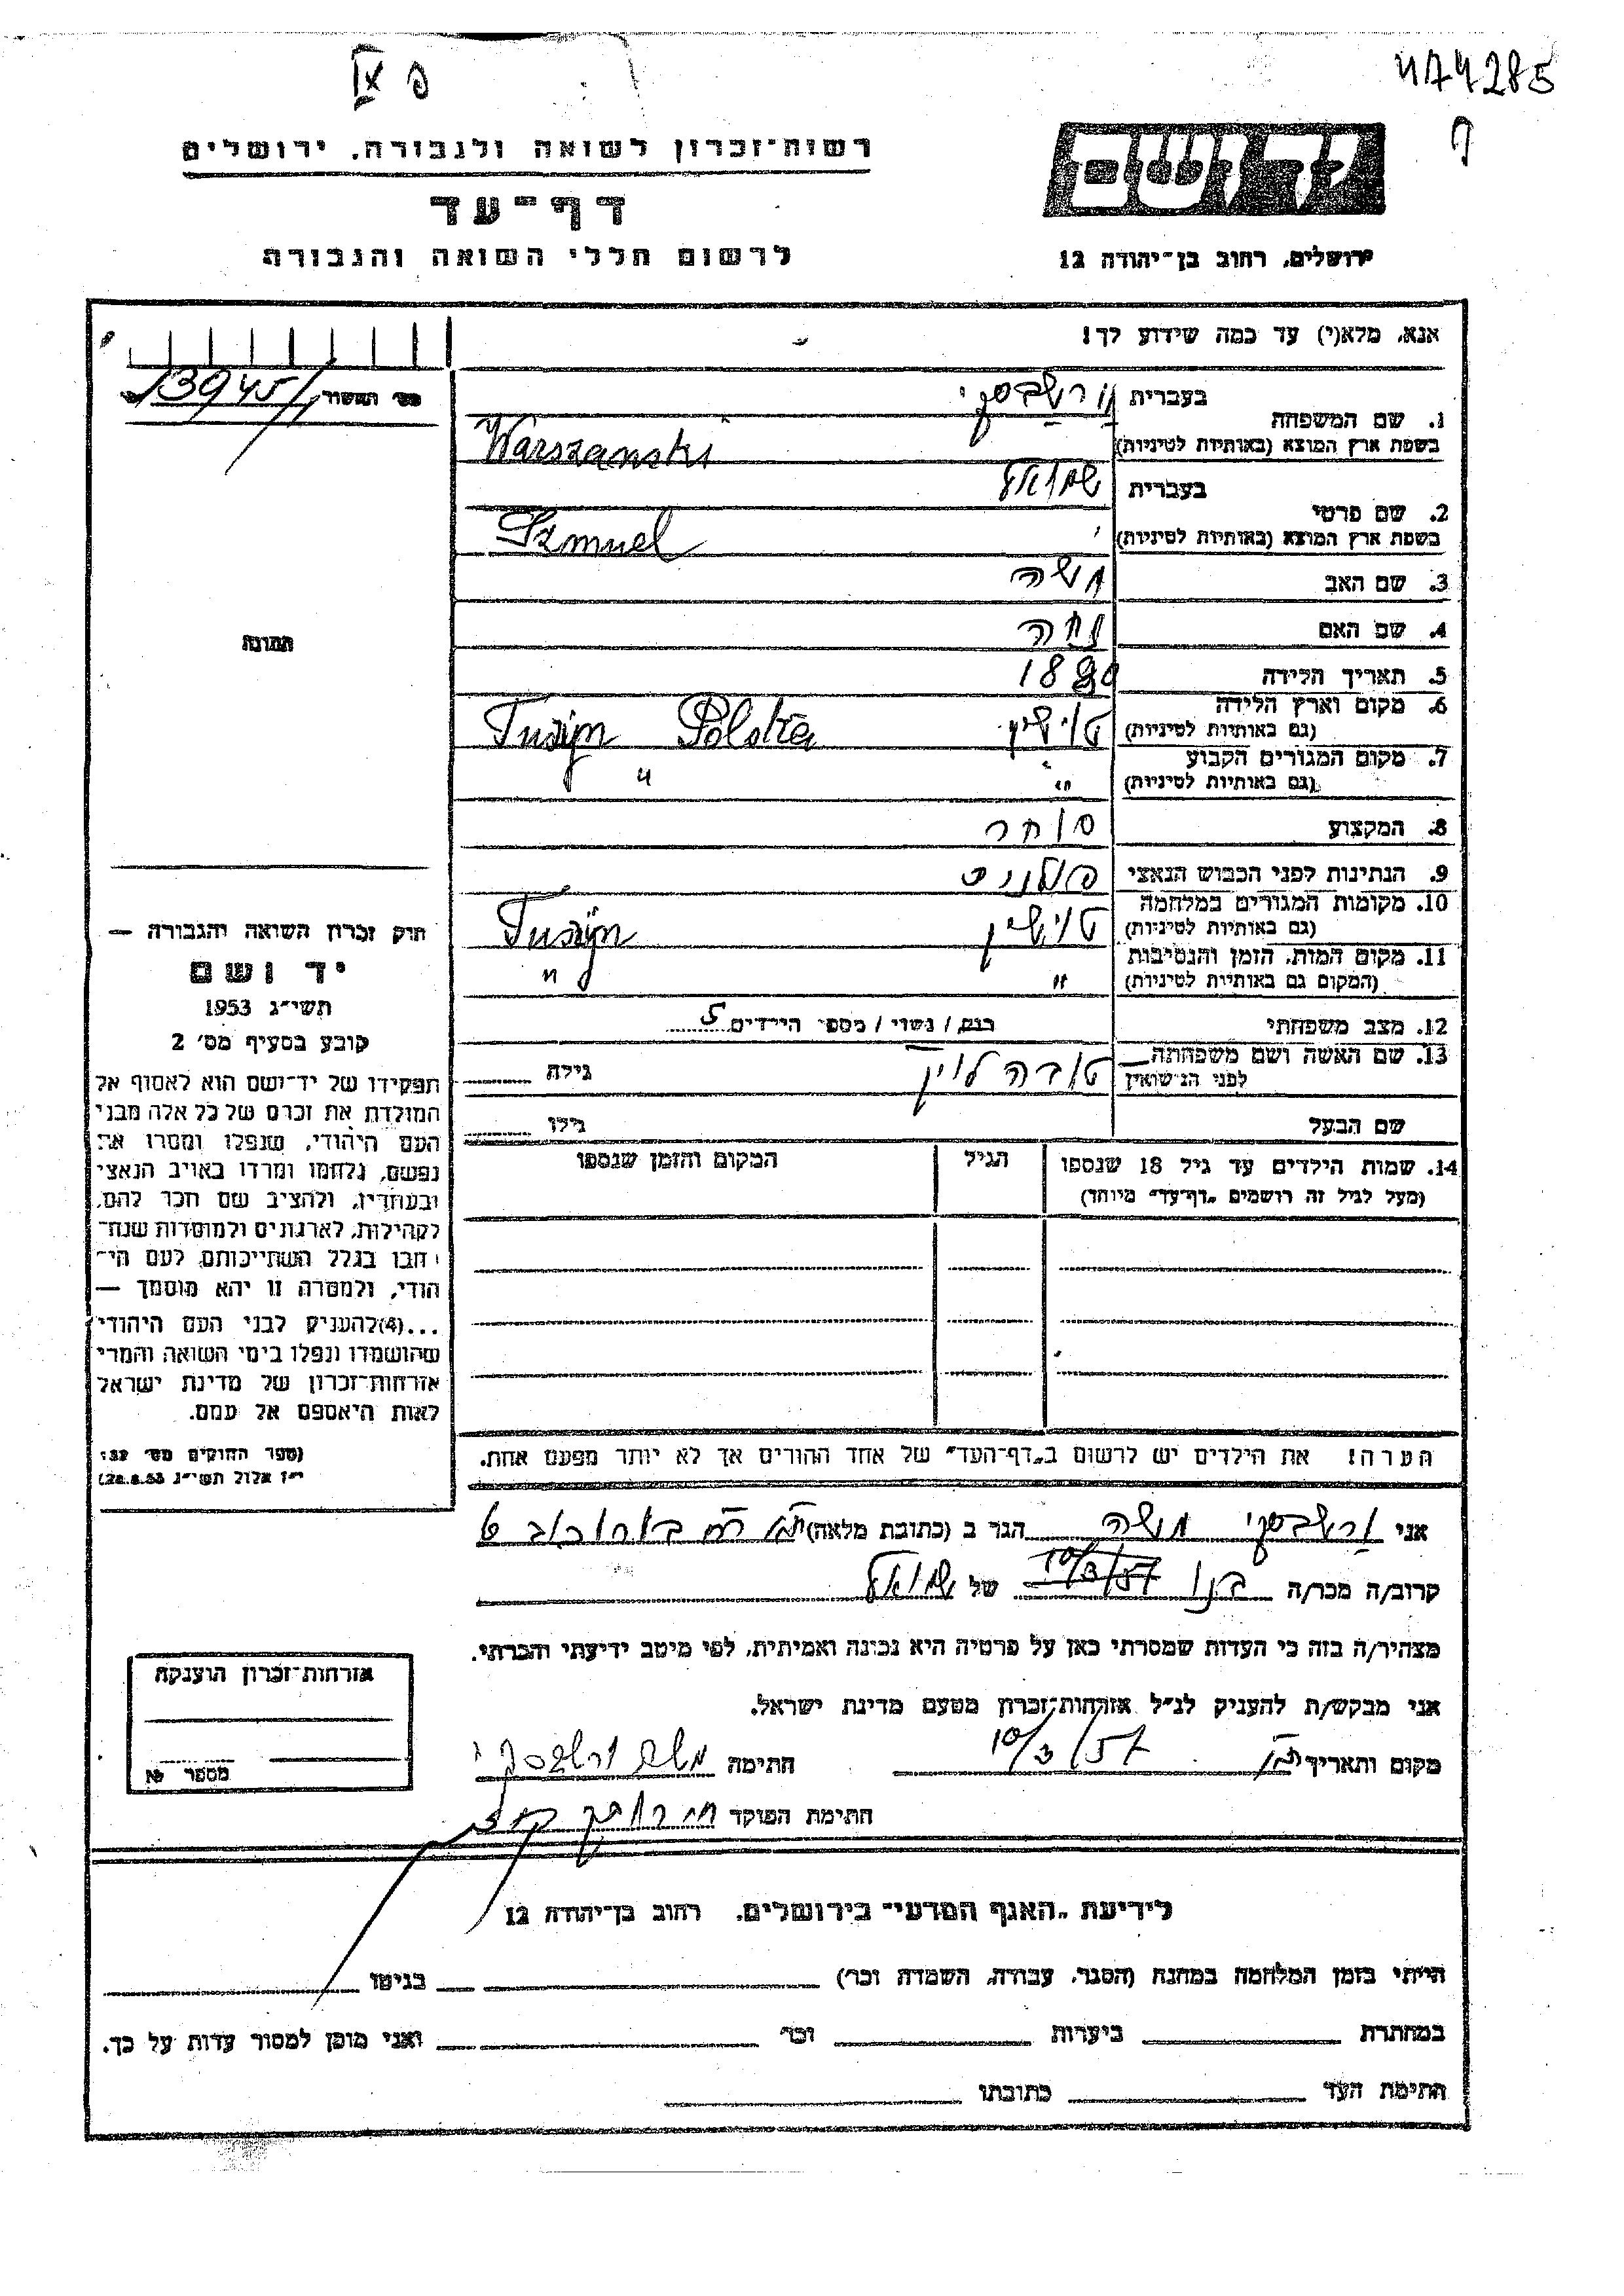 474285
רשות־זכרון לשואה ולגבורה. ירושלים
דף־עד
לרשום חללי השואה והגבורה
יד ושם
ירושלים, רחוב בן־יהודה 12
אנא, מלא(י) עד כמה שידוע לך!
1. שם המשפחה בעברית ורשבסקי
בשפת ארץ המוצא (באותיות לטיניות) Warszawski
2. שם פרטי בעברית שמואל
בשפת ארץ המוצא (באותיות לטיניות) Szmuel
3. שם האב משה
4. שם האם
5. תאריך הלידה
6. מקום וארץ הלידה
(גם באותיות לטיניות) טושין Tuszyn Polska
7. מקום המגורים הקבוע
(גם באותיות לטיניות) " "
8. המקצוע סוחר
9. הנתינות לפני הכבוש הנאצי פולנית
10. מקומות המגורים במלחמה
(גם באותיות לטיניות) טושין Tuszyn
11. מקום המות, הזמן והנסיבות
(המקום גם באותיות לטיניות) " "
12. מצב משפחתי רווק / נשוי / מספר הילדים 5
13. שם האשה ושם משפחתה
לפני הנישואין טובה לוין גילה
שם הבעל גילו
14. שמות הילדים עד גיל 18 שנספו הגיל המקום והזמן שנספו
(מעל לגיל זה רושמים "דף־עד" מיוחד)
הערה! את הילדים יש לרשום ב"דף־העד" של אחד ההורים אך לא יותר מפעם אחת.
מס' התשור 13945/
תמונה
חוק זכרון השואה והגבורה —
יד ושם
תשי"ג 1953
קובע בסעיף מס' 2
תפקידו של יד־ושם הוא לאסוף אל
המולדת את זכרם של כל אלה מבני
העם היהודי, שנפלו ומסרו את
נפשם, נלחמו ומרדו באויב הנאצי
ובעוזריו, ולהציב שם וזכר להם,
לקהילות, לארגונים ולמוסדות שנח־
רבו בגלל השתייכותם לעם הי־
הודי, ולמטרה זו יהא מוסמך —
...(4) להעניק לבני העם היהודי
שהושמדו ונפלו בימי השואה והמרי
אזרחות־זכרון של מדינת ישראל
לאות היאספם אל עמם.
(ספר החוקים מס' 132,
י"ז אלול תשי"ג 28.8.53)
אני ורשבסקי משה הגר ב (כתובת מלאה)
קרוב/ה מכר/ה בן 10/3/57 של שמואל
מצהיר/ה בזה כי העדות שמסרתי כאן על פרטיה היא נכונה ואמיתית, לפי מיטב ידיעתי והכרתי.
אני מבקש/ת להעניק לנ"ל אזרחות־זכרון מטעם מדינת ישראל.
מקום ותאריך 10/3/57 חתימה משה ורשבסקי
חתימת הפוקד
אזרחות־זכרון הוענקה
מספר №
לידיעת "האגף המדעי" בירושלים, רחוב בן־יהודה 12
הייתי בזמן המלחמה במחנה (הסגר, עבודה, השמדה וכו') בגיטו
במחתרת ביערות וכו' ואני מוכן למסור עדות על כך.
חתימת העד כתובתו